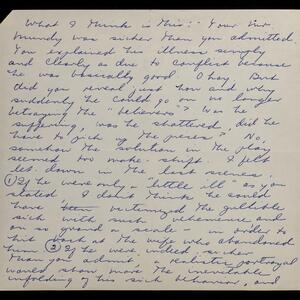 What I think is this: Your Mr.
Mundy was sicker than you admitted.
You explained his illness simply
and clearly as due to conflict because
he was basically good. Okay. But
did you reveal just how and why
suddenly he could go on no longer
betraying the "believers"? Was he
suffering, was he shattered, did he
have to pick up the pieces? No,
somehow the solution in the play
seemed too make-shift. I felt
let down in the last scenes.
① If he were only a "little ill" as you
stated, I don't think he could
have victimized the gullible
with such vehemence and
on so grand a scale - in order to
hit back at the wife who abandoned
him ② If he were indeed sicker
than you admit, a realistic portrayal
would show more the inevitable
unfolding of his sick behavior, and